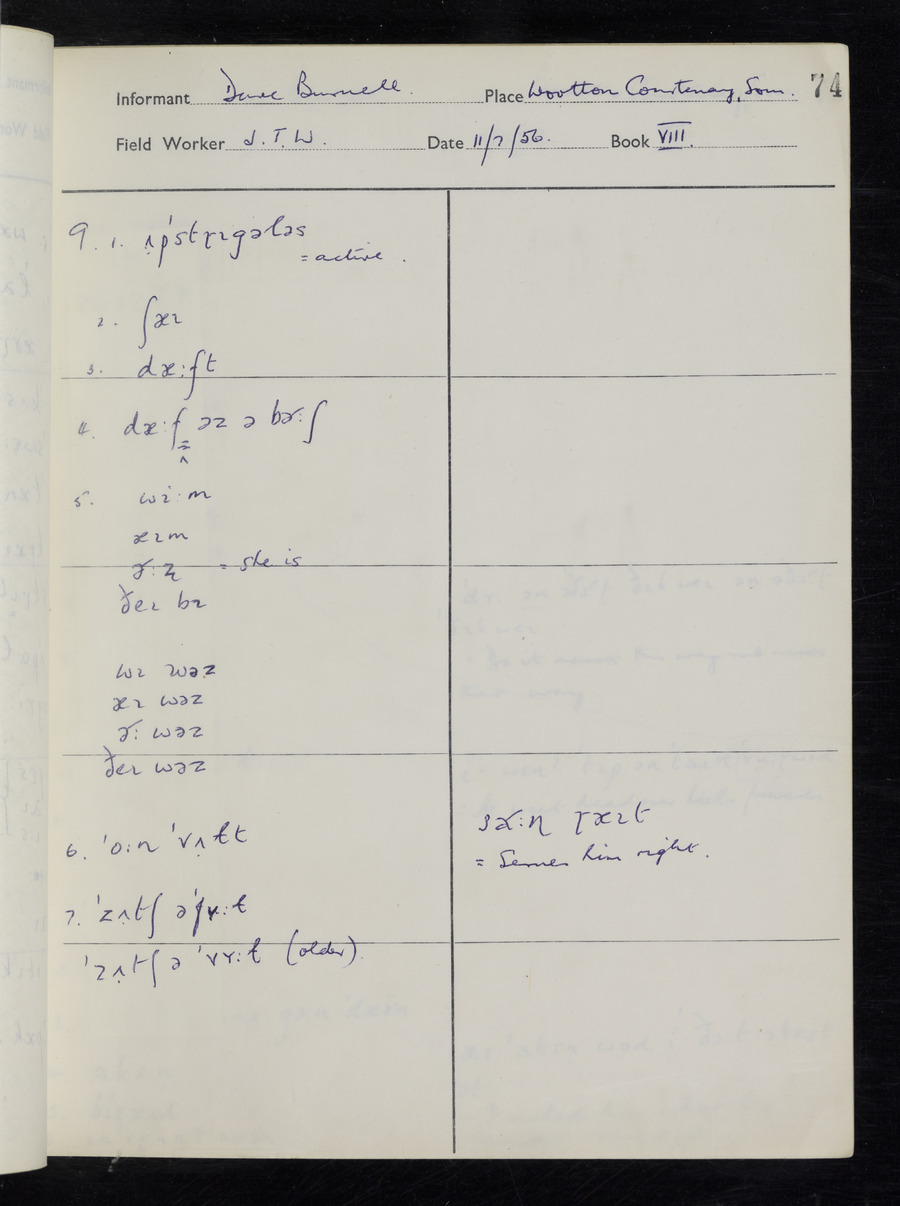 74
Informant Dave Burnell. Place Wootton Courtenay, Som.
Field Worker J. T. W. Date 11/7/56. Book VIII.
9. 1. ʌp'stɽɪgələs
= active.
2. ʃæɪ
3. dæ:ft
4. dæ:f əz ə bɤ:ʃ
5. wi:m
æɪm
ɤ:ʐ = she is
ðeɪ bɪ
wɪ wəz
æɪ wəz
ɤ: wəz
ðeɪ wəz
6. 'o:n 'vʌɫt
7. 'zʌtʃ ə'fʏ:ɫ
'zʌtʃ ə 'vʏ:ɫ (older)
ʀæɪt
= Serves him right.